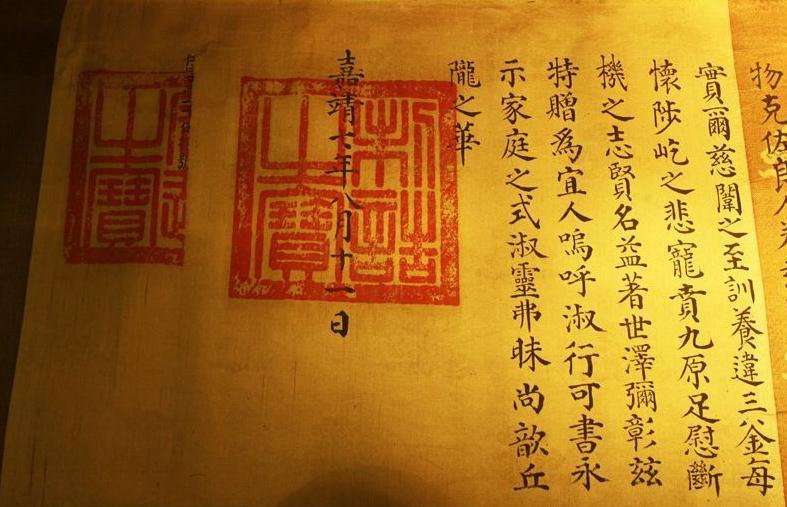 物克佐良人
實爾慈闈之至訓養違三釡每
懷陟屺之悲寵賁九原足慰斷
機之志賢名益著世澤彌彰玆
特贈爲宜人嗚呼淑行可書永
示家庭之式淑靈弗昧尚歆丘
隴之華
嘉靖七年八月十一日
制誥之寶
之寶